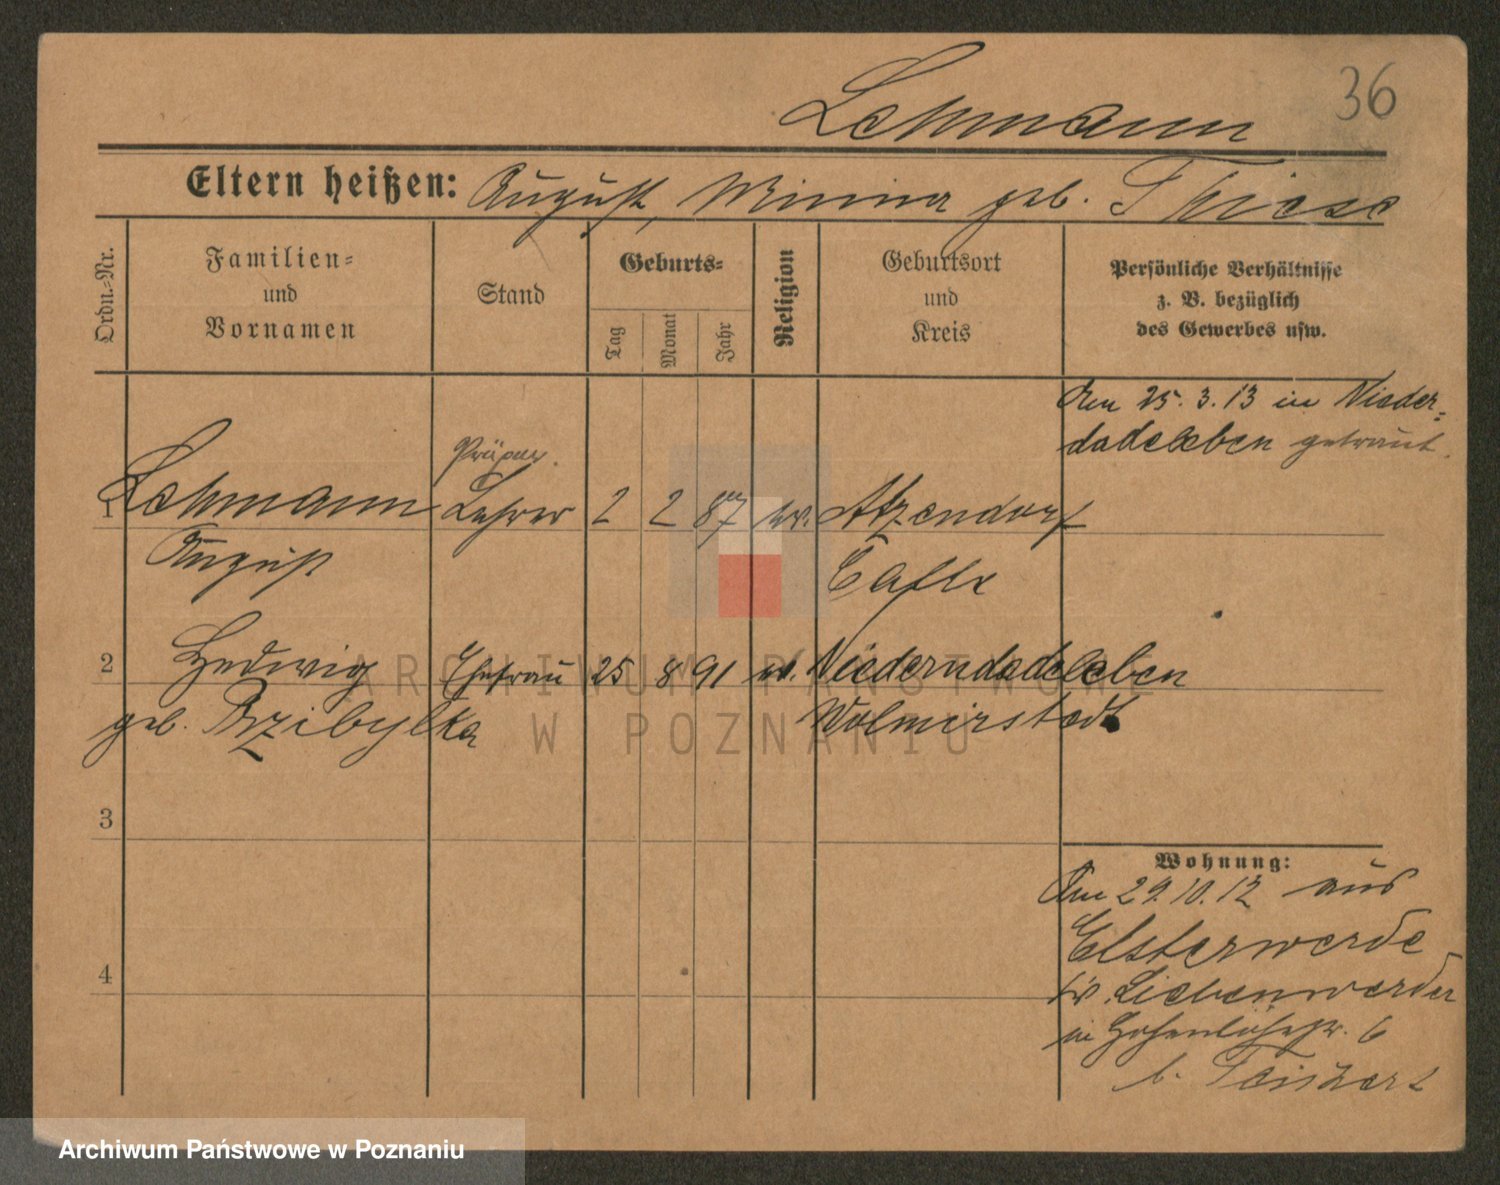 36
Lehmann
Eltern heißen: August, Minna geb. Thiese
Ordn.-Nr.
Familien-
und
Vornamen
Stand
Geburts-
Tag
Monat
Jahr
Religion
Geburtsort
und
Kreis
Persönliche Verhältnisse
z. B. bezüglich
des Gewerbes usw.
Am 25.3.13 in Nieder-
dodeleben getraut.
Präpar.
1 Lehmann Lehrer 2 2 87 ev. Atzendorf
August Calbe
2 Hedwig Ehefrau 25 8 91 ev. Niederndodeleben
geb. Przibylka Wolmirstedt
3
Wohnung:
Am 29.10.12 aus
Elsterwerda
Kr. Liebenwerda
in Hohenlohestr. 6
b. Teichert
4
ARCHIWUM PAŃSTWOWE
W POZNANIU
Archiwum Państwowe w Poznaniu